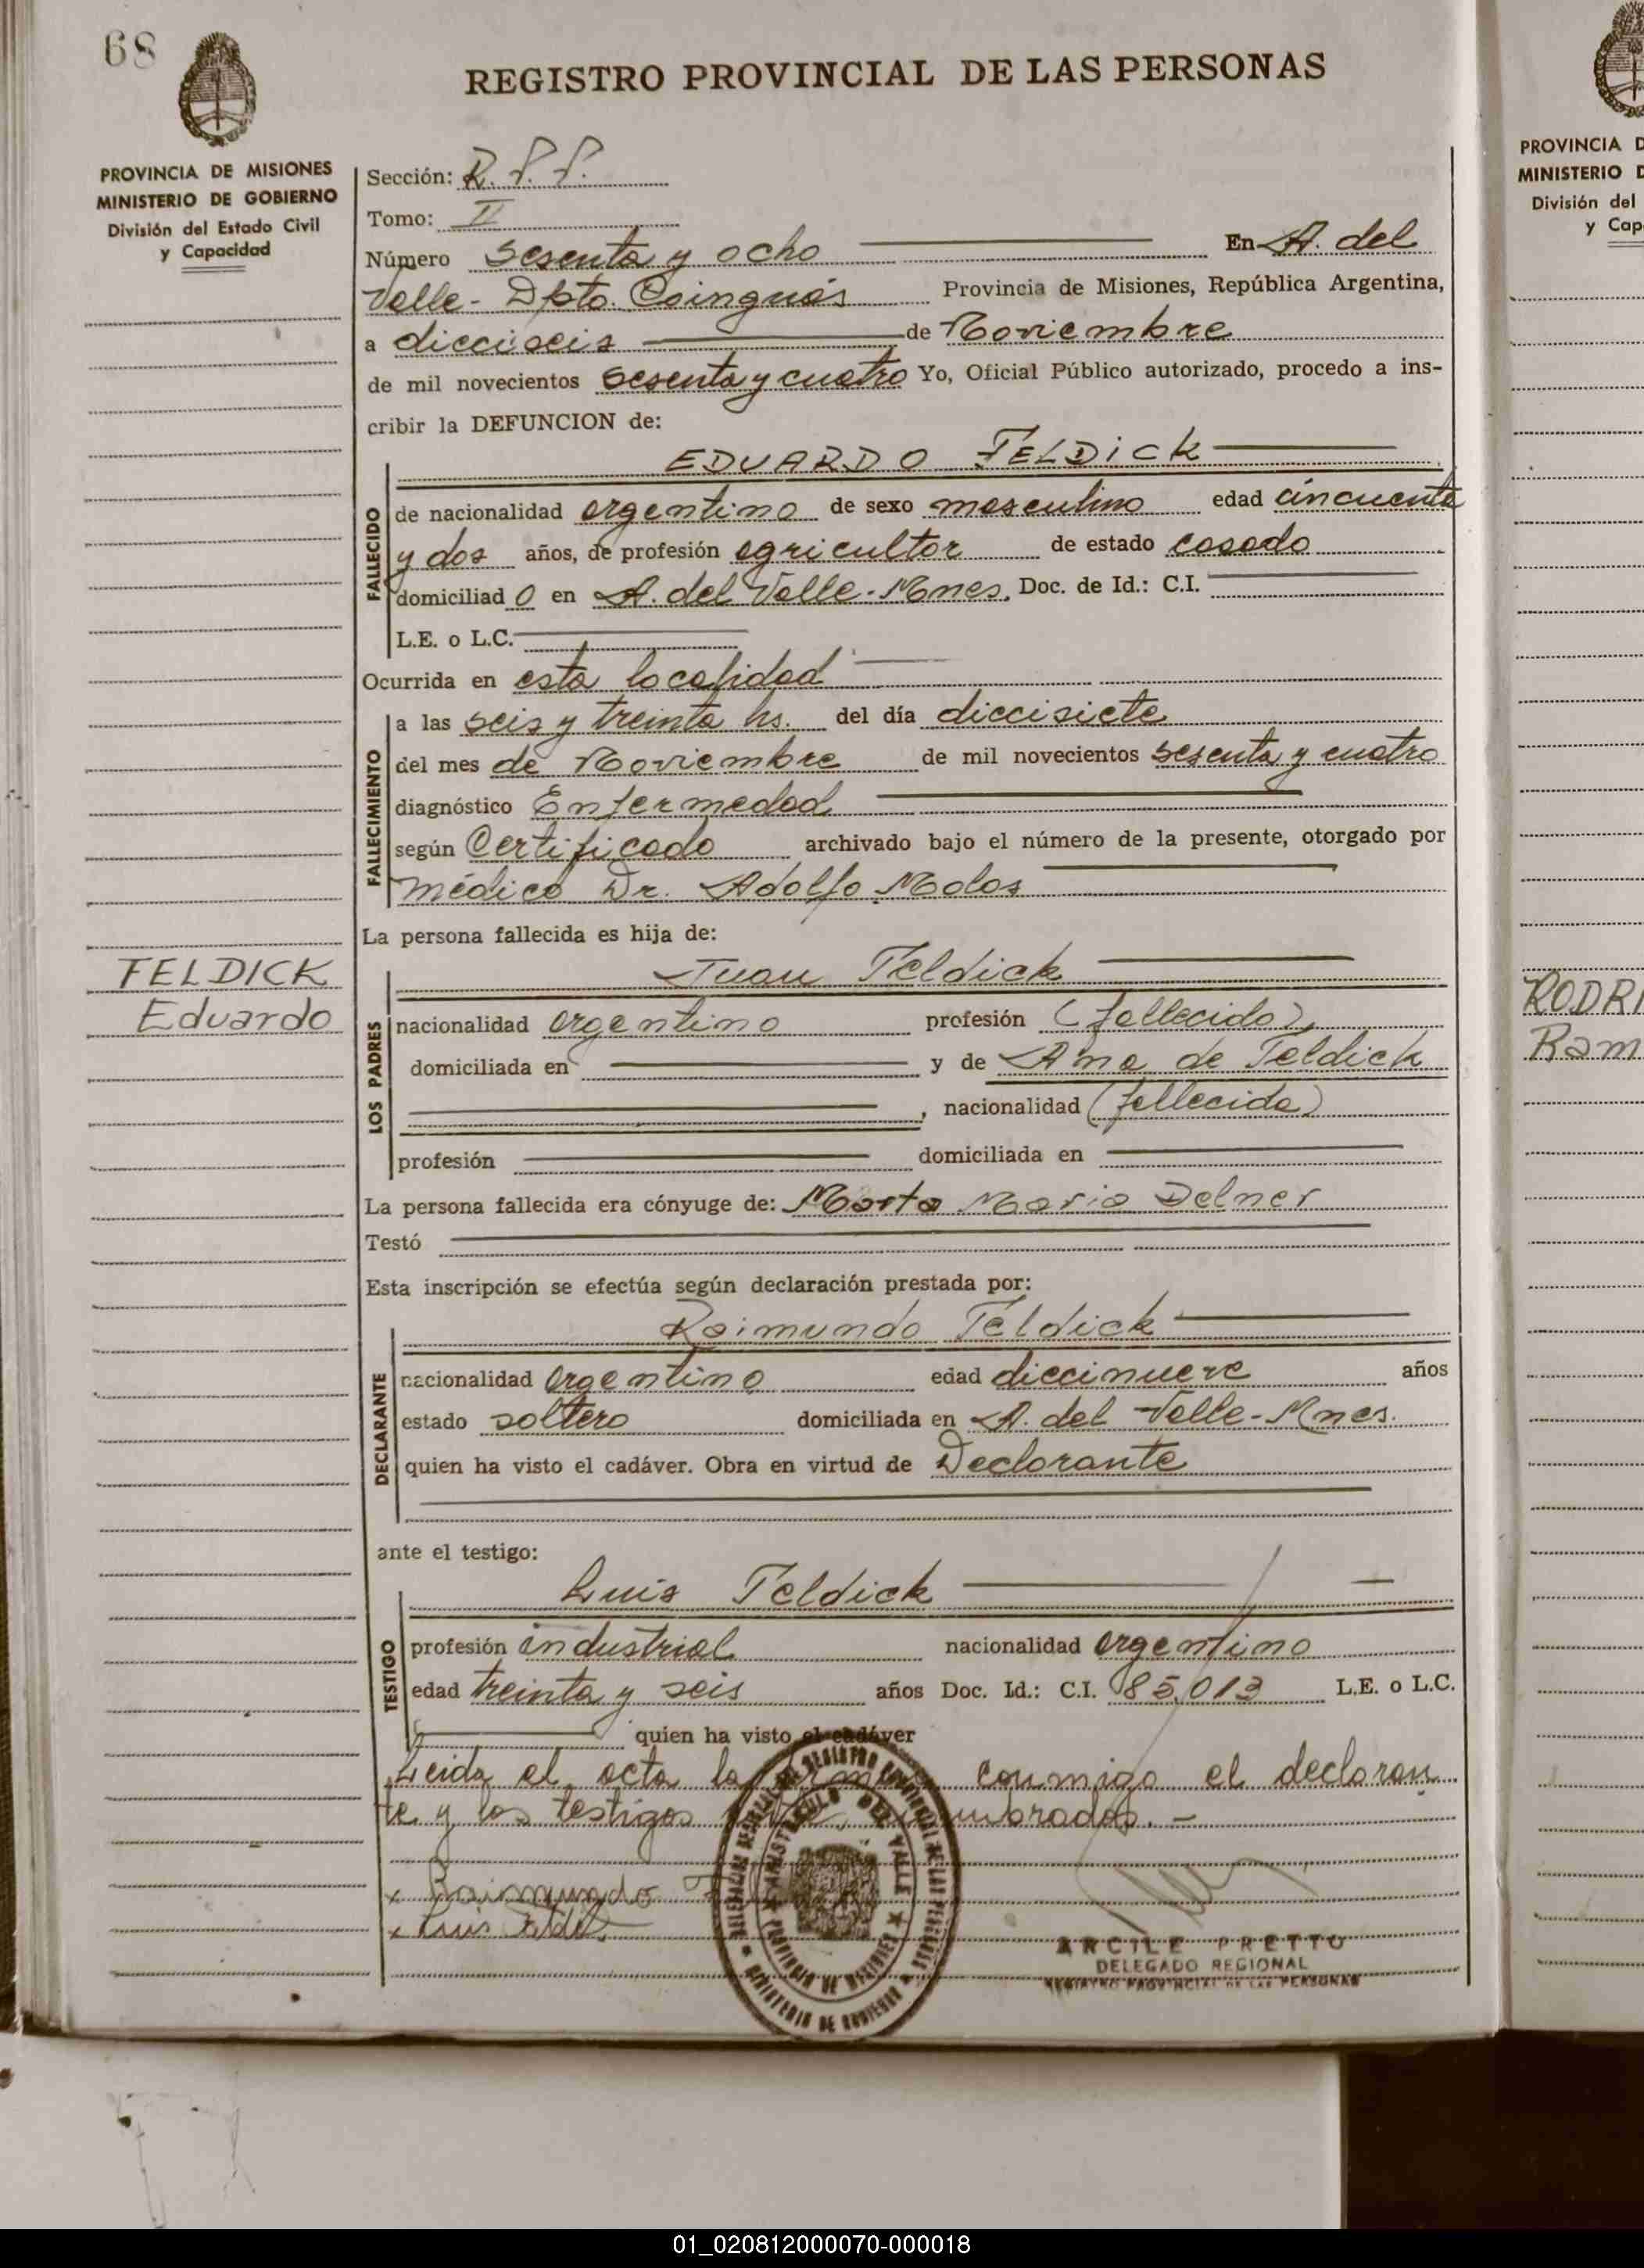 68
REGISTRO PROVINCIAL DE LAS PERSONAS
PROVINCIA DE MISIONES
MINISTERIO DE GOBIERNO
División del Estado Civil
y Capacidad
Sección: R.P.P.
Tomo: II
Número sesenta y ocho En A. del
Valle - Dpto. Cainguás Provincia de Misiones, República Argentina,
a diecciseis de Noviembre
de mil novecientos sesenta y cuatro Yo, Oficial Público autorizado, procedo a ins-
cribir la DEFUNCION de:
EDUARDO FELDICK
FALLECIDO
de nacionalidad argentino de sexo masculino edad cincuenta
y dos años, de profesión agricultor de estado casado
domiciliad o en A. del Valle - Mnes. Doc. de Id.: C.I.
L.E. o L.C.
Ocurrida en esta localidad
FALLECIMIENTO
a las seis y treinta hs. del día diecisiete
del mes de Noviembre de mil novecientos sesenta y cuatro
diagnóstico Enfermedad
según Certificado archivado bajo el número de la presente, otorgado por
médico Dr. Adolfo
La persona fallecida es hija de:
FELDICK
Eduardo
LOS PADRES
Juan Feldick
nacionalidad argentino profesión (fallecido)
domiciliada en y de Ana de Feldick
, nacionalidad (fallecida)
profesión domiciliada en
La persona fallecida era cónyuge de: Marta Maria Delner
Testó
Esta inscripción se efectúa según declaración prestada por:
Raimundo Feldick
DECLARANTE
nacionalidad argentino edad diecinueve años
estado soltero domiciliada en A. del Valle - Mnes.
quien ha visto el cadáver. Obra en virtud de Declarante
ante el testigo:
Luis Feldick
TESTIGO
profesión industrial nacionalidad argentino
edad treinta y seis años Doc. Id.: C.I. 85.013 L.E. o L.C.
quien ha visto el cadáver
Leida el acta la conmigo el declaran
te y los testigos
x Raimundo
x Luis
ARISTOBULO DEL VALLE
PROVINCIA DE MISIONES
MINISTERIO DE GOBIERNO
ARCILE PRETTO
DELEGADO REGIONAL
REGISTRO PROVINCIAL DE LAS PERSONAS
PROVINCIA D
MINISTERIO D
División del
y Cap
RODRI
Ram
01_020812000070-000018